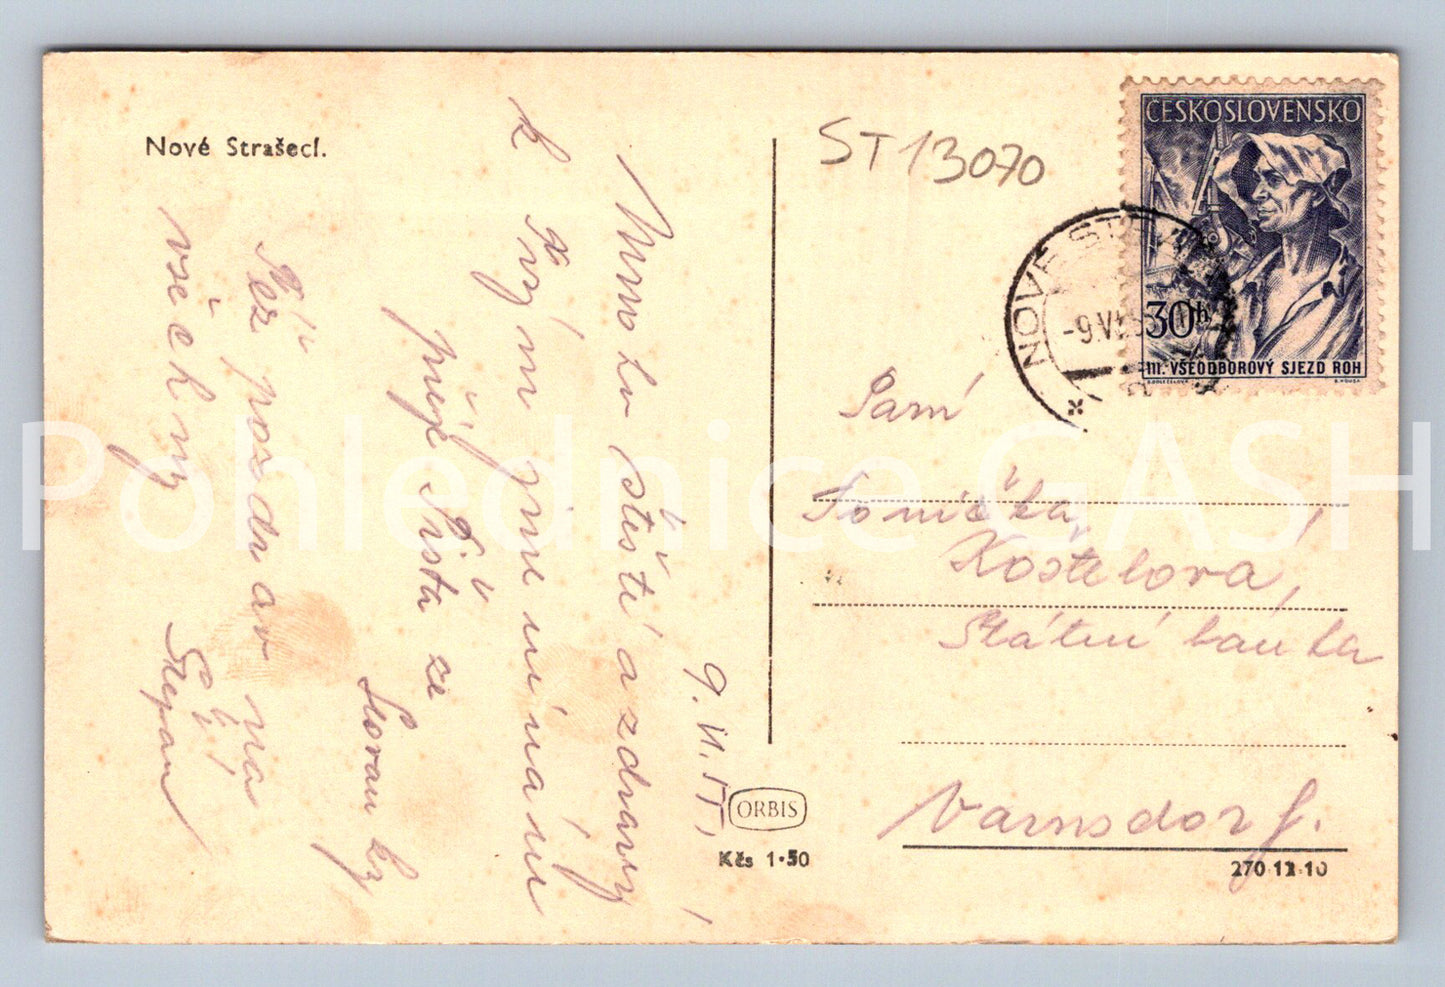 Nové Strašecí.
ST 13070
ČESKOSLOVENSKO
30h
III. VŠEODBOROVÝ SJEZD ROH
NOVÉ STRAŠ
-9.VI.5
9. VI. 1955
Mnoho štěstí a zdraví
k Tvým jmeninám
přeje Píšťa ze
Slovan ky
Též pozdrav na
všechny
Štěpán
Paní
Tonička
Košťelová,
Státní banka
Varnsdorf.
ORBIS
Kčs 1·50
270 12 10
Pohlednice GASH